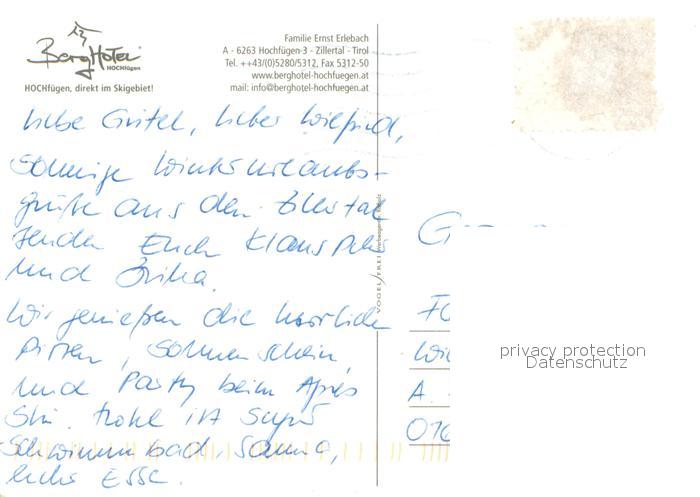 BergHotel
HOCHfügen
HOCHfügen, direkt im Skigebiet!
Familie Ernst Erlebach
A - 6263 Hochfügen 3 - Zillertal - Tirol
Tel. ++43/(0)5280/5312, Fax 5312-50
www.berghotel-hochfuegen.at
mail: info@berghotel-hochfuegen.at
liebe Gritel, lieber Wilfried,
Sonnige Winterurlaubs-
grüße aus dem Zillertal
senden Euch Klaus Peter
und Erika.
Wir genießen die herrlichen
Pisten, Sonnenschein,
und Party beim Après
Ski. Hotel ist super
Schwimmbad, Sauna,
lecker Esse.
VOGEL/FREI
G
Wi
A
016
privacy protection
Datenschutz